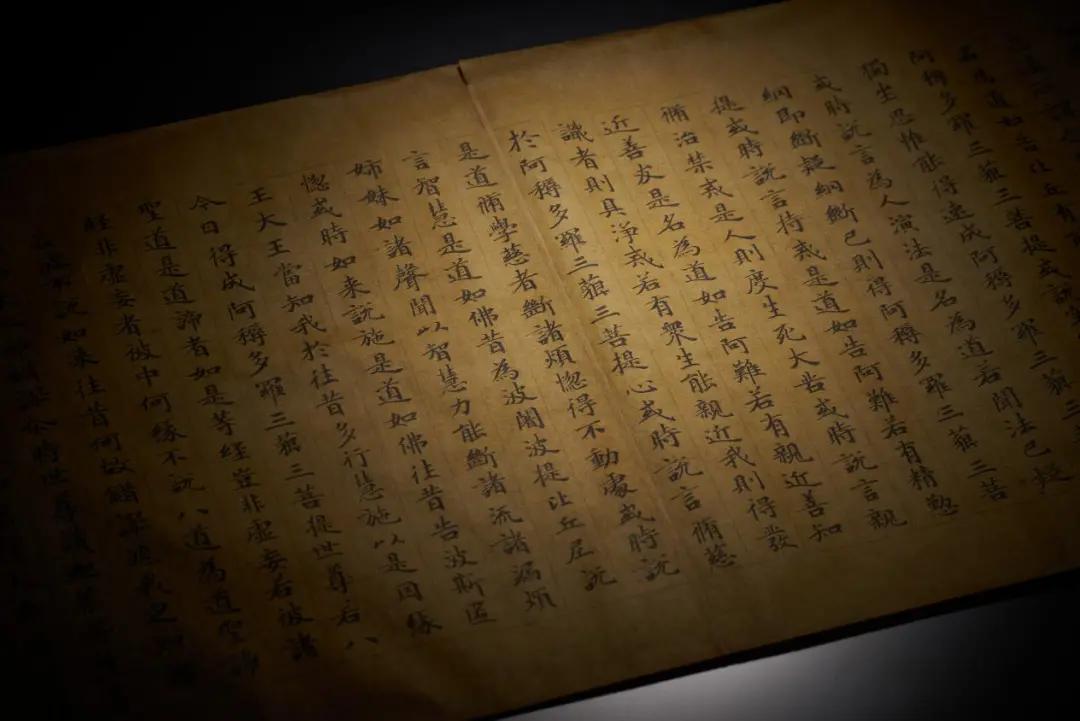 名為道如告比丘有
阿耨多羅三藐三菩提或說
獨坐思惟能得速成阿耨多羅三藐三
或時說言為人演法是名為道若聞法已疑
網即斷疑網斷已則得阿耨多羅三藐三菩
提或時說言持戒是道如告阿難若有精懃
脩治禁戒是人則度生死大苦或時說言親
近善友是名為道如告阿難若有親近善知
識者則具淨戒若有眾生能親近我則得發
於阿耨多羅三藐三菩提心或時說言脩慈
是道脩學慈者斷諸煩惱得不動處或時說
言智慧是道如佛昔為波闍波提比丘尼說
姊妹如諸聲聞以智慧力能斷諸流諸漏煩
惱或時如来說施是道如佛往昔告波斯匿
王大王當知我於往昔多行惠施以是因緣
今日得成阿耨多羅三藐三菩提世尊若八
聖道是道諦者如是等經豈非虛妄若彼諸
經非虛妄者彼中何緣不說八道為道聖諦
不說如来往昔何故錯謬